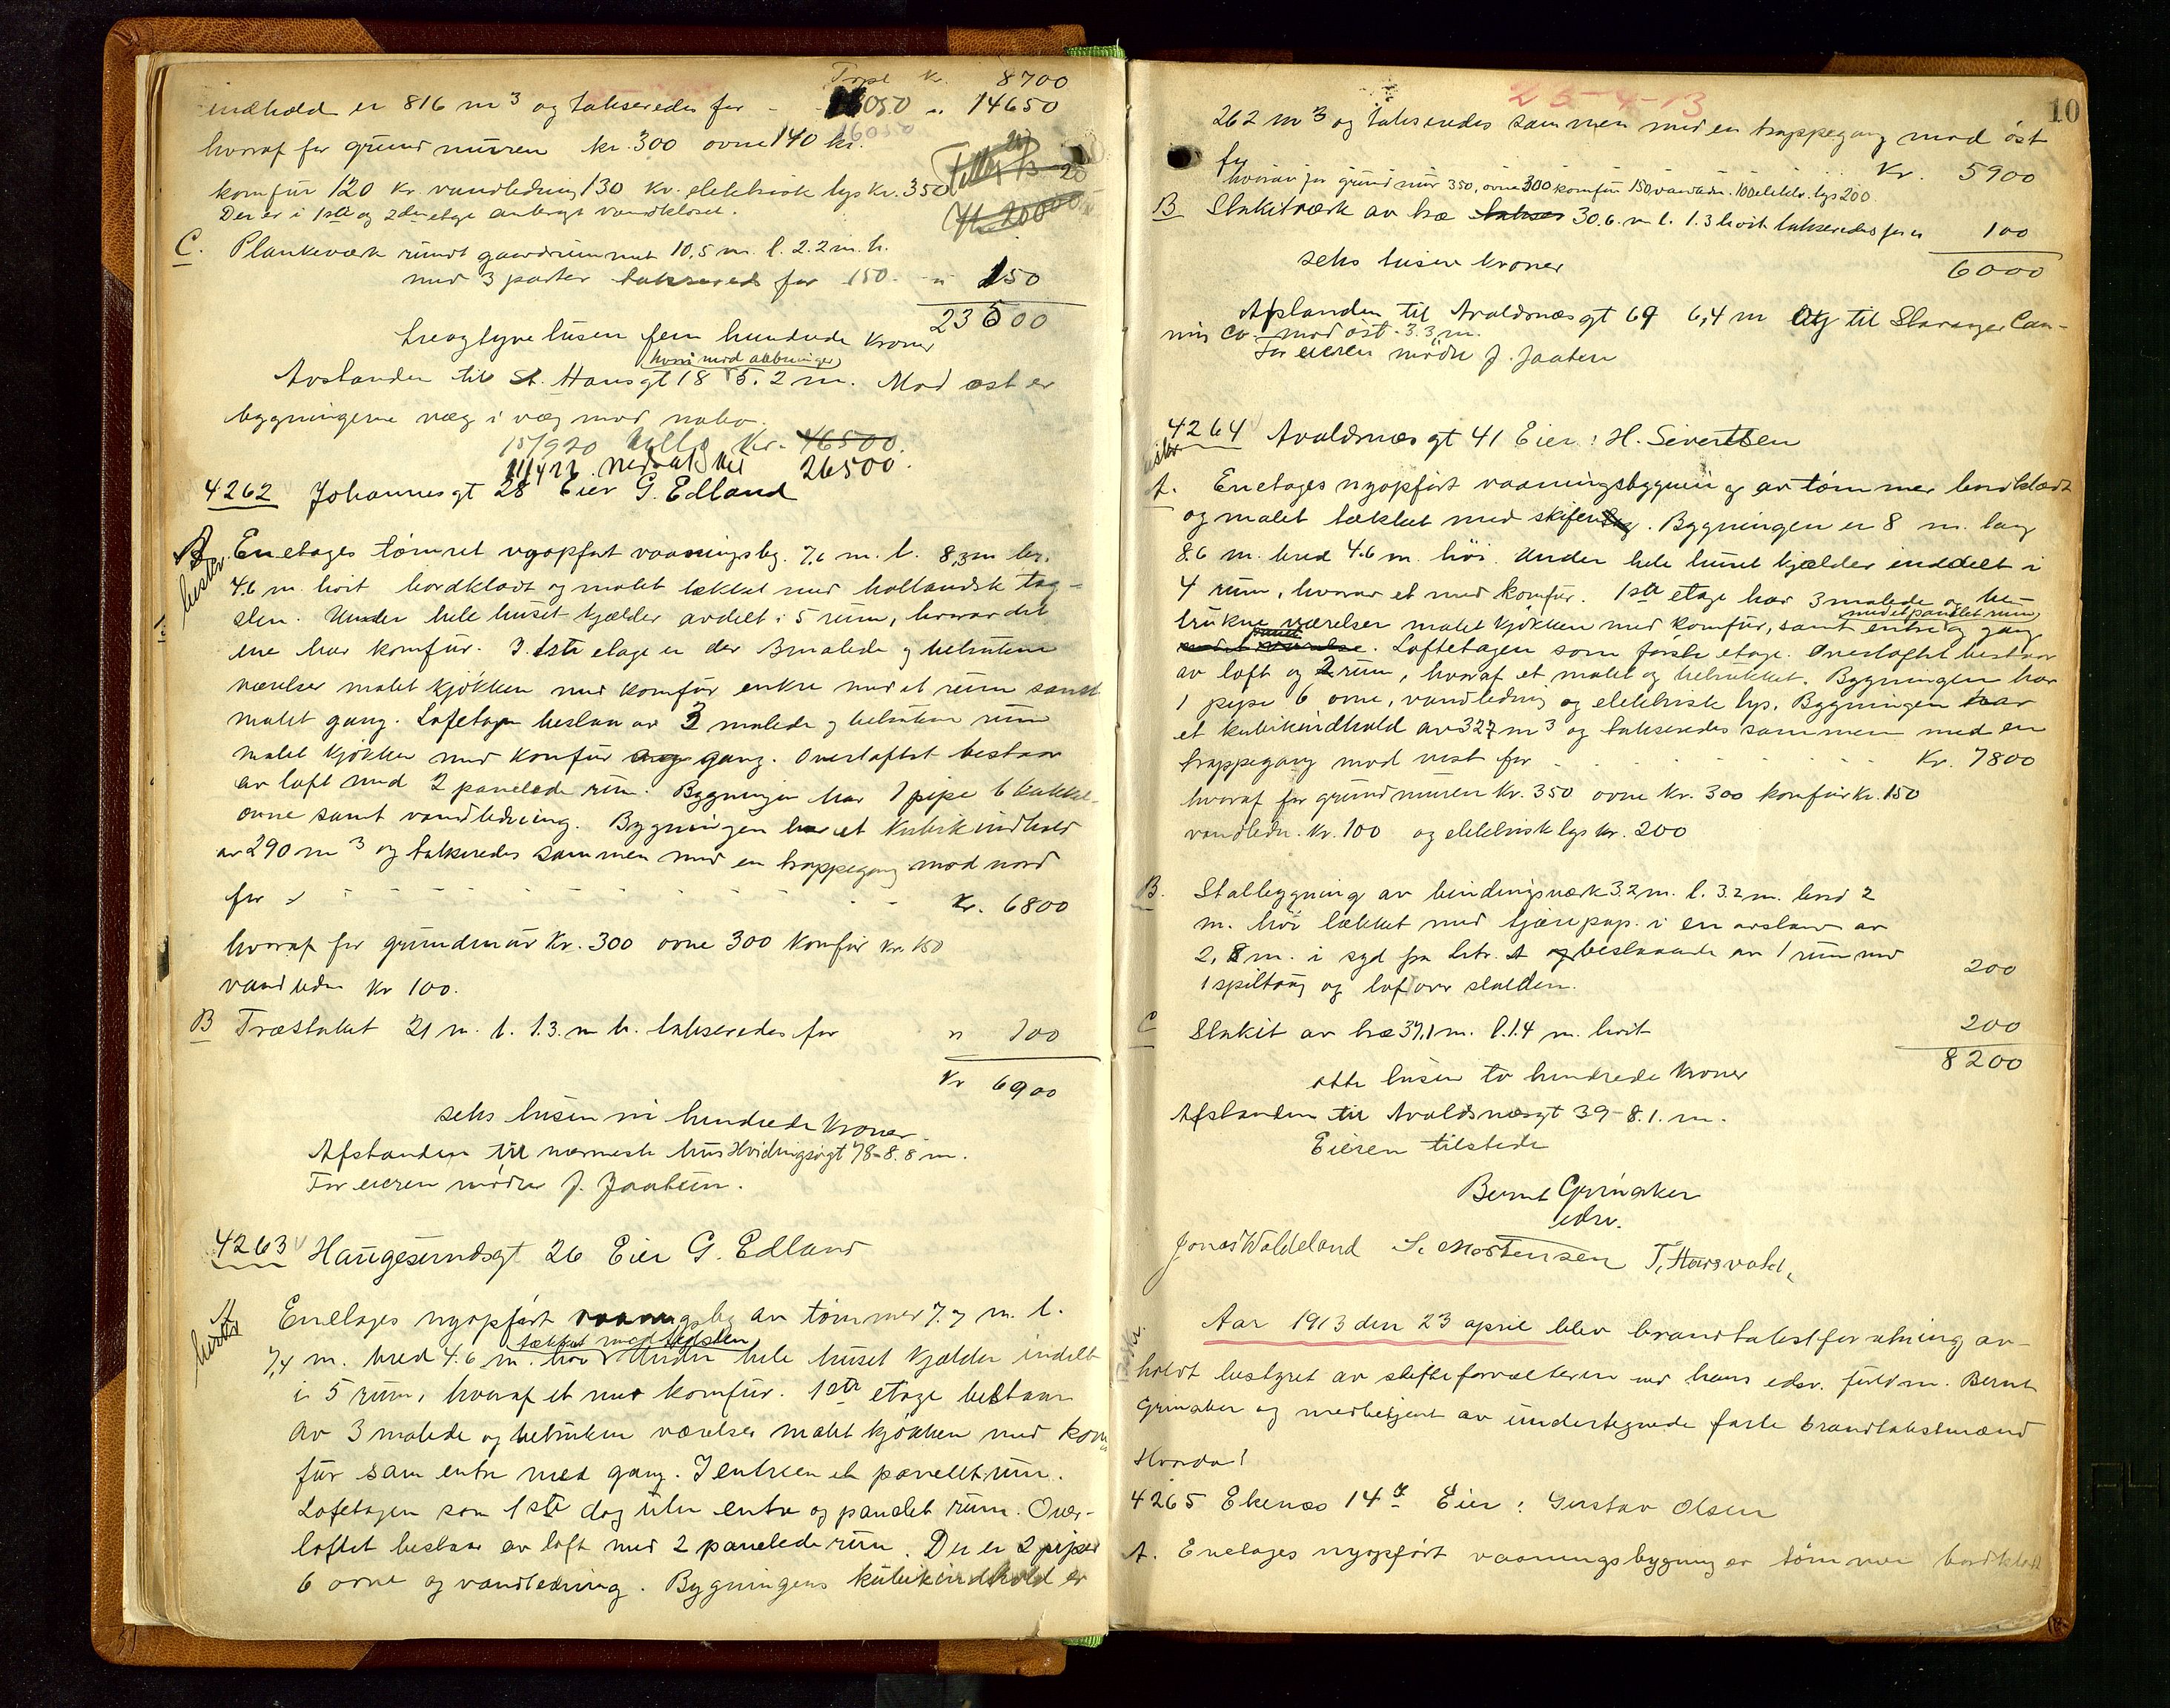 Trpt kr. 8700
indhold er 816 m3 og takseredes for - 16050 „ 14650
hvoraf for grundmuren kr. 300 ovne 140 kr. 16050
komfur 120 kr. vandledning 130 kr. elektrisk lys kr. 350
Der er i 1ste og 2den etage anbragt vandkloset.
C. Plankeværk rundt gaardrummet 10,5 m. l. 2.2 m. h.
med 3 porter takseres for 150. - „ 150
23500
treogtyve tusen fem hundrede kroner
Avstanden til St. Hansgt 18 5.2 m. Mod øst er
bygningerne væg i væg mod nabo.
15/9 20 Kr. 46500.
11/4 22 nedsat til 26500.
4262 Johannesgt 28 Eier G. Edland
A Enetages tømret nyopført vaaningsbg. 7,6 m. l. 8,3 m br.
4.6 m. høit bordklædt og malet tækket med hollandsk tag-
sten. Under hele huset kjælder avdelt i 5 rum, hvorav det
ene har komfur. I 1ste etage er der 3 malede og betrukne
værelser malet kjøkken med komfur entre med et rum samt
malet gang. Loftetagen bestaar av 3 malede og betrukne rum
malet kjøkken med komfur og gang. Overloftet bestaar
av loft med 2 panelede rum. Bygningen har 1 pipe 6 kakkel-
ovne samt vandledning. Bygningen har et kubikindhold
av 290 m3 og takseredes sammen med en trappegang mod nord
for - - - - - - Kr. 6800
hvoraf for grundmur Kr. 300 ovne 300 Komfur kr. 150
vandledn kr 100.
B Træstakit 21 m. l. 1.3. m h. takseredes for „ 100
Kr 6900
seks tusen ni hundrede kroner.
Afstanden til nærmeste hus Hvidingsøgt 78 - 8.8 m.
For eieren mødte J. Jaatun.
4263 Haugesundsgt 26 Eier G. Edland
A Enetages nyopført vaaningsbg av tømmer 7.7 m. l.
tækket med tagsten
7,4 m. bred 4.6 m. høi. Under hele huset kjælder indelt
i 5 rum, hvoraf et med komfur. 1ste etage bestaar
av 3 malede og betrukne værelser malet kjøkken med kom
fur sam entre med gang. I entreen et panelt rum.
Loftetagen som 1ste dog uten entre og panelet rum. Over-
loftet bestaar av loft med 2 panelede rum. Der er 2 piper
6 ovne og vandledning. Bygningens kubikindhold er
25-4-13
10
262 m3 og takseredes sammen med en trappegang mod øst
for Kr. 5900
hvorav for grundmur 350, ovne 300 komfur 150 vandledn. 100 elektr. lys 200
B Stakitværk av træ 30.6. m l. 1.3 høit takseredes for „ 100
seks tusen kroner 6000
Afstanden til Avaldsnæsgt 69 6,4 m Og til Stavanger Can-
ning Co. mod øst - 3.3 m.
For eieren mødte J. Jaatun
4264 Avaldsnæsgt 41 Eier: H. Sivertsen
A. Enetages nyopført vaaningsbygning av tømmer bordklædt
og malet tækket med skifer. Bygningen er 8 m. lang
8.6 m. bred 4.6 m. høi. Under hele huset kjælder inddelt i
4 rum, hvorav et med komfur. 1ste etage har 3 malede og be-
med et panelet rum
trukne værelser malet kjøkken med komfur, samt entre og gang
. Loftetagen som første etage. Overloftet bestaar
av loft og 2 rum, hvoraf et malet og betrukket. Bygningen har
1 pipe 6 ovne, vandledning og elektriske lys. Bygningen har
et kubikindhold av 327 m3 og takseredes sammen med en
trappegang mod vest for - - - Kr. 7800
hvoraf for grundmuren Kr. 350 ovne kr. 300 komfur kr. 150
vandledn. kr. 100 og elektrisk lys kr. 200
B. Stalbygning av bindingsværk 3.2 m. l. 3.2 m. bred 2
m. høi tækket med tjærepap. i en avstand av
2,8 m. i syd fra Litr. A og bestaaende av 1 rum med
1 spiltaug og loft over stalden. 200
C Stakit av træ 37,1 m. l. 1.4 m. høit 200
8200
otte tusen to hundrede kroner
Afstanden til Avaldsnæsgt 39 - 8.1. m.
Eieren tilstede
Bernt Grimaker
edsv.
Jonas Waldeland S. Mortensen T. Haasvald.
Aar 1913 den 23 april blev brandtakstforretning av-
holdt bestyret av skifteforvalteren ved hans edsv. fuldm. Bernt
Grimaker og medbetjent av undertegnede faste brandtakstmænd
Hvorda:
4265 Ekenæs 14 Eier: Gustav Olsen
A. Enetages nyopført vaaningsbygning av tømmer bordklædt